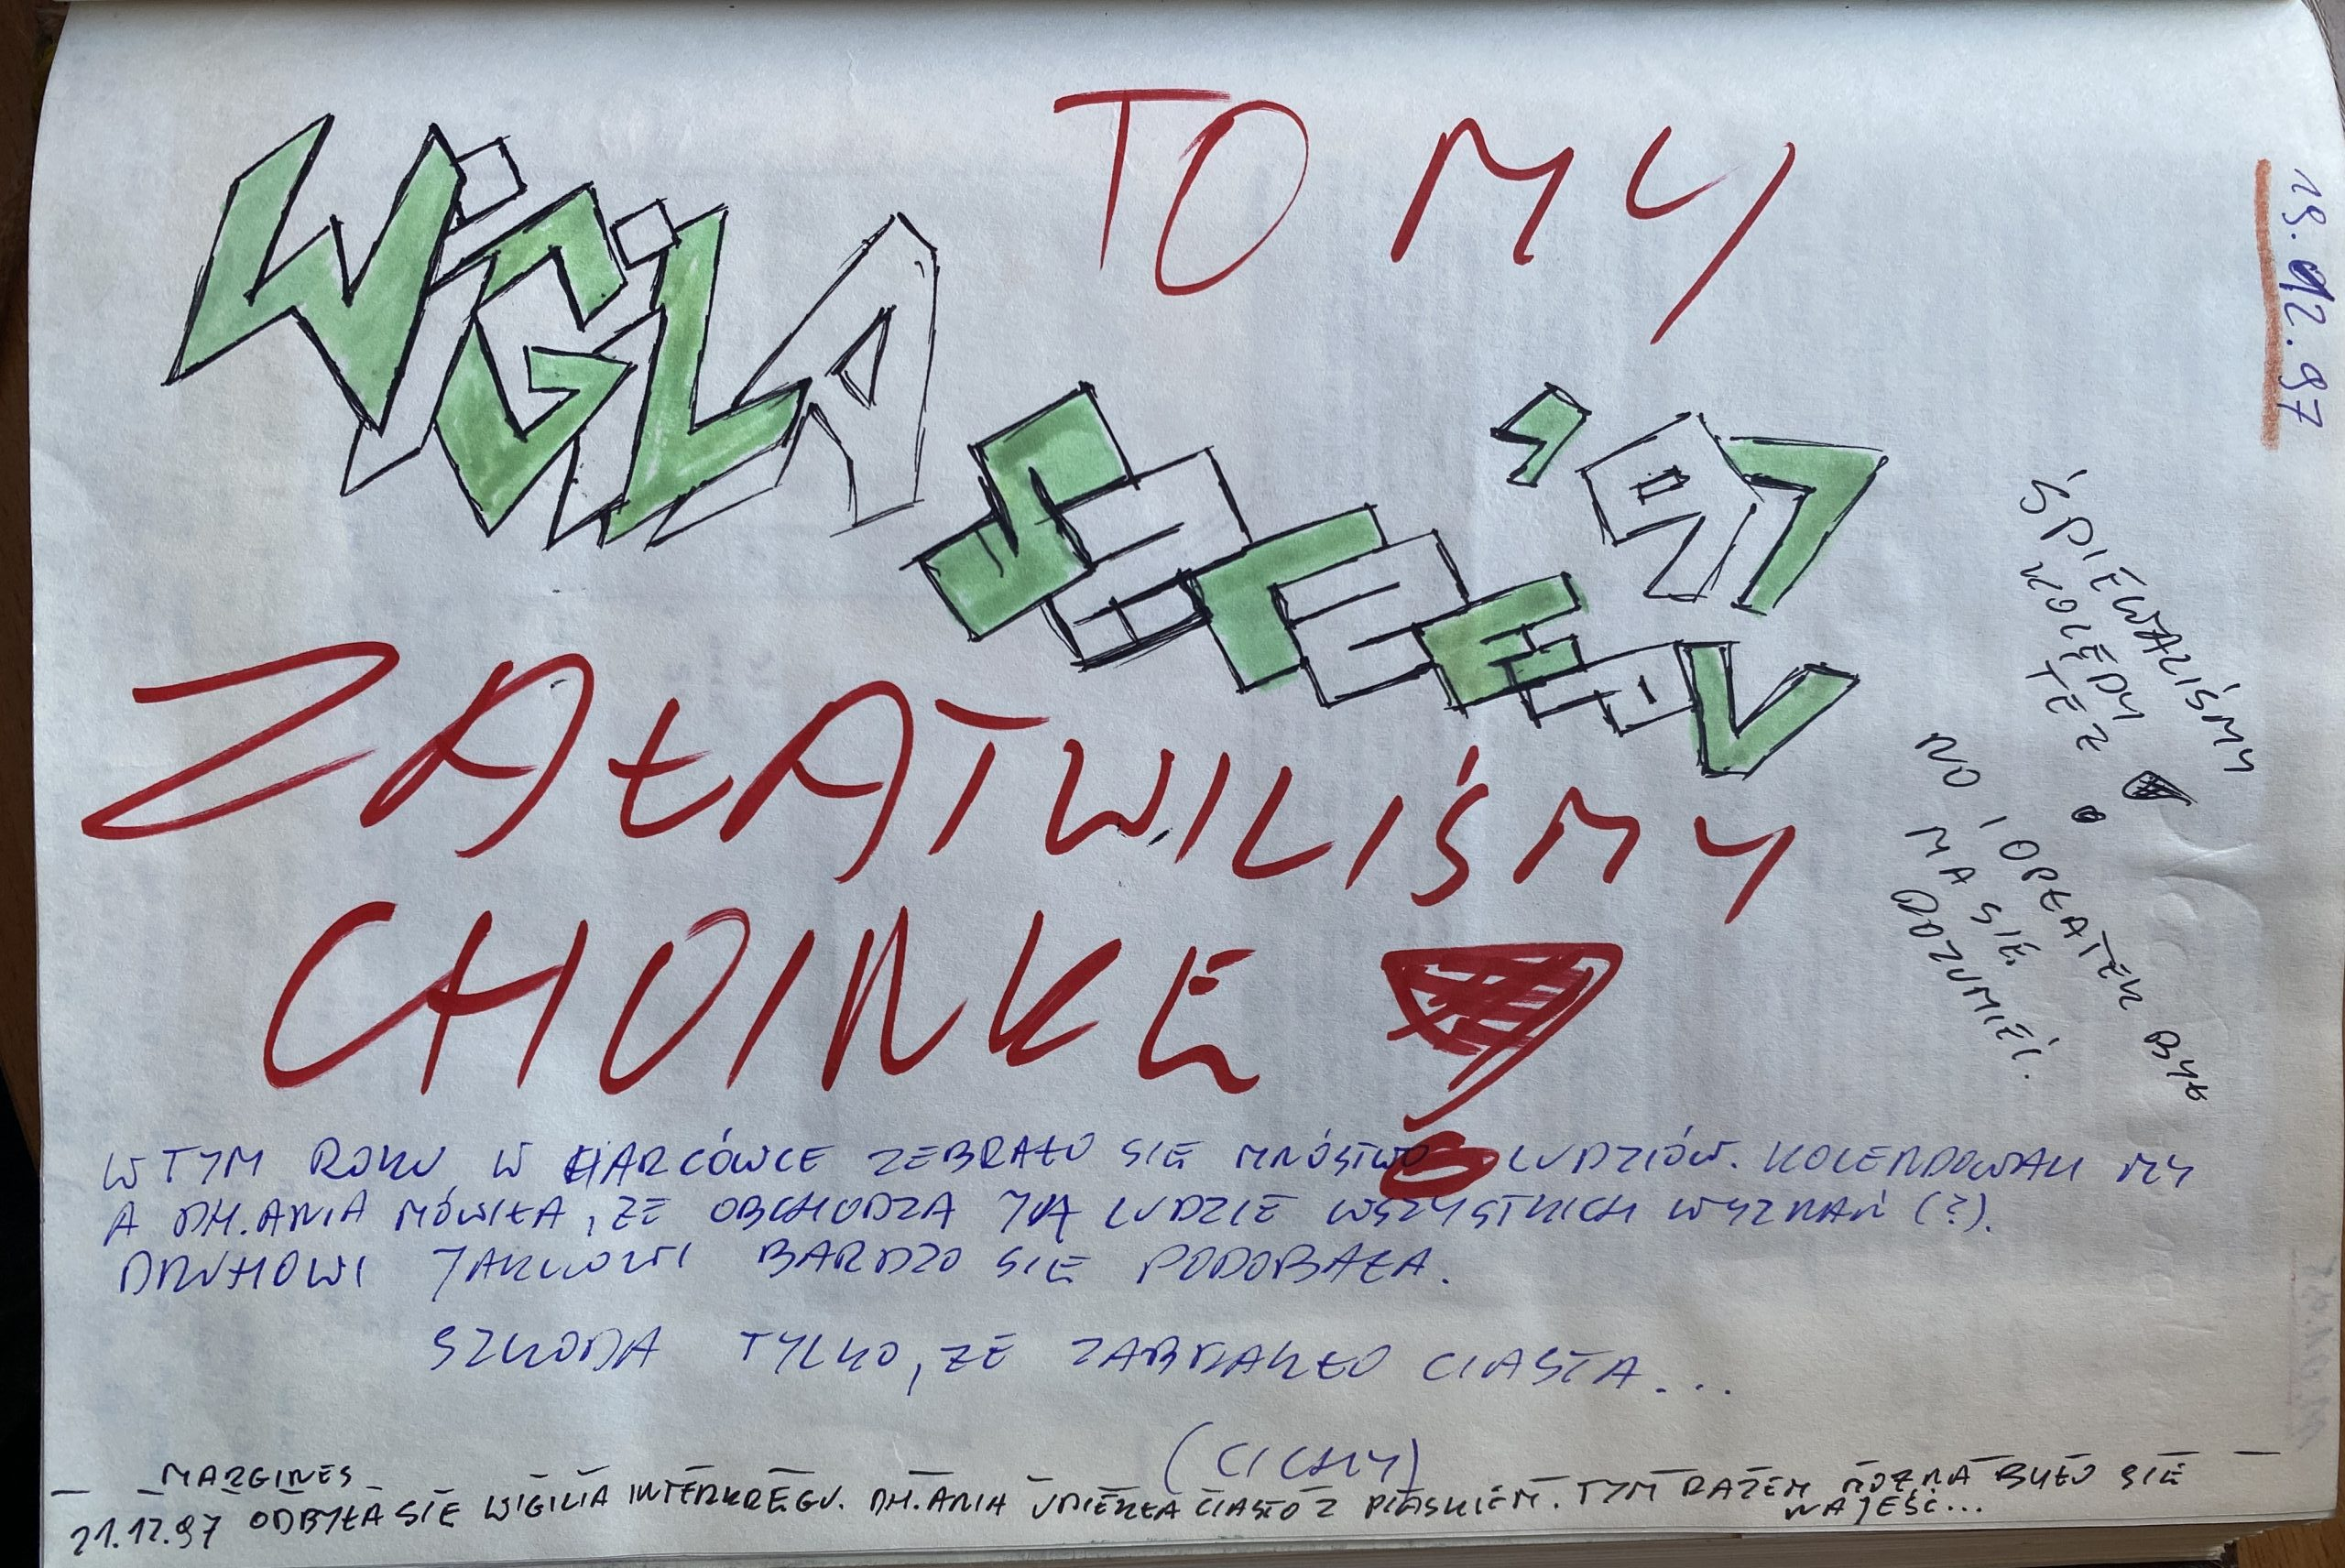 TO MY
19.12.97
WiGiLiA
SZCZEPU
'97
ZAŁATWILIŚMY
CHOINKĘ!
ŚPIEWALIŚMY
KOLĘDY
TEŻ!
NO I OPŁATEK BYŁ
MA SIĘ
ROZUMIEĆ.
W TYM ROKU W HARCÓWCE ZEBRAŁO SIĘ MNÓSTWO LUDZIÓW. KOLENDOWALI MY
A DH. ANIA MÓWIŁA, ŻE OBCHODZĄ JĄ LUDZIE WSZYSTKICH WYZNAŃ (?).
DRUHOWI JAKUOWI BARDZO SIĘ PODOBAŁA.
SZKODA TYLKO, ŻE ZABRAKŁO CIASTA...
(CICHY)
MARGINES
21.12.97 ODBYŁA SIĘ WIGILIA INTERKRĘGU. DH. ANIA UPIEKŁA CIASTO Z PIASKIEM. TYM RAZEM MOŻNA BYŁO SIĘ
NAJEŚĆ...